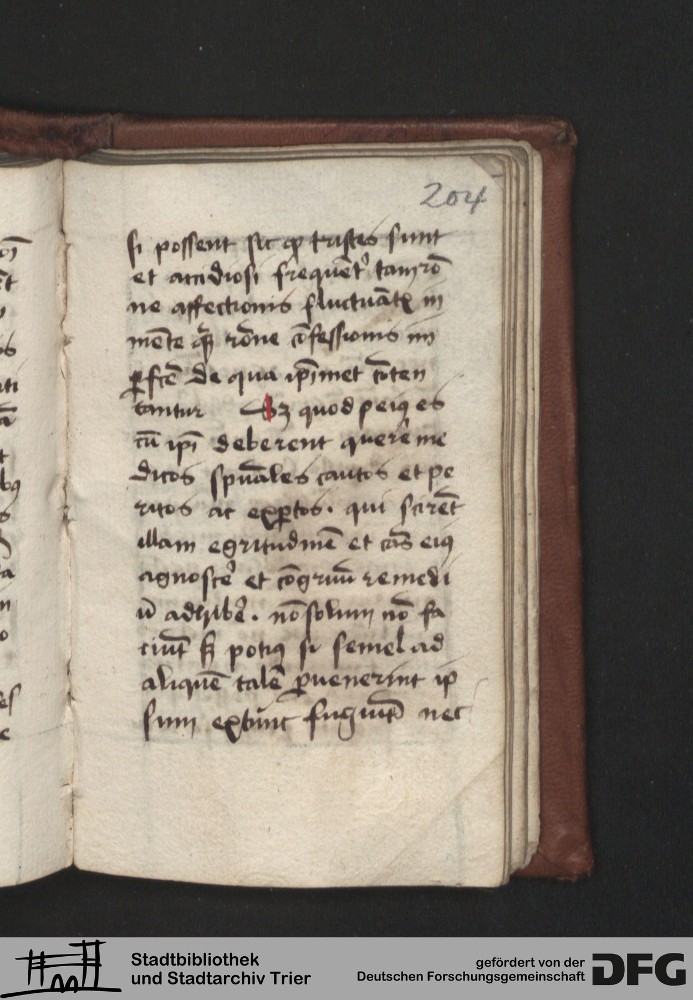 204
si possent sic qꝫ tristes sunt
et accidiosi frequēt᷑ tam rō
ne affectionis fluctuāt in
mēte qᷓ rōne ꝯfessionis im
ꝑfcē de qua ipīmet
tantur Sꝫ quod peiꝰ es
cū ipī deberent querere me
dicos spūales cautos et pe
ritos ac exꝑtos. qui scirēt
illam egritudinē et cās eiꝰ
agnosce᷑ et ꝯgruū remedi
ū adhibe᷑. nō solum nō fa
ciūt sꝫ potiꝰ si semel ad
aliquē talē ꝑuenerint ip
sum fugiūt nec
Stadtbibliothek
und Stadtarchiv Trier
gefördert von der
Deutschen Forschungsgemeinschaft
DFG